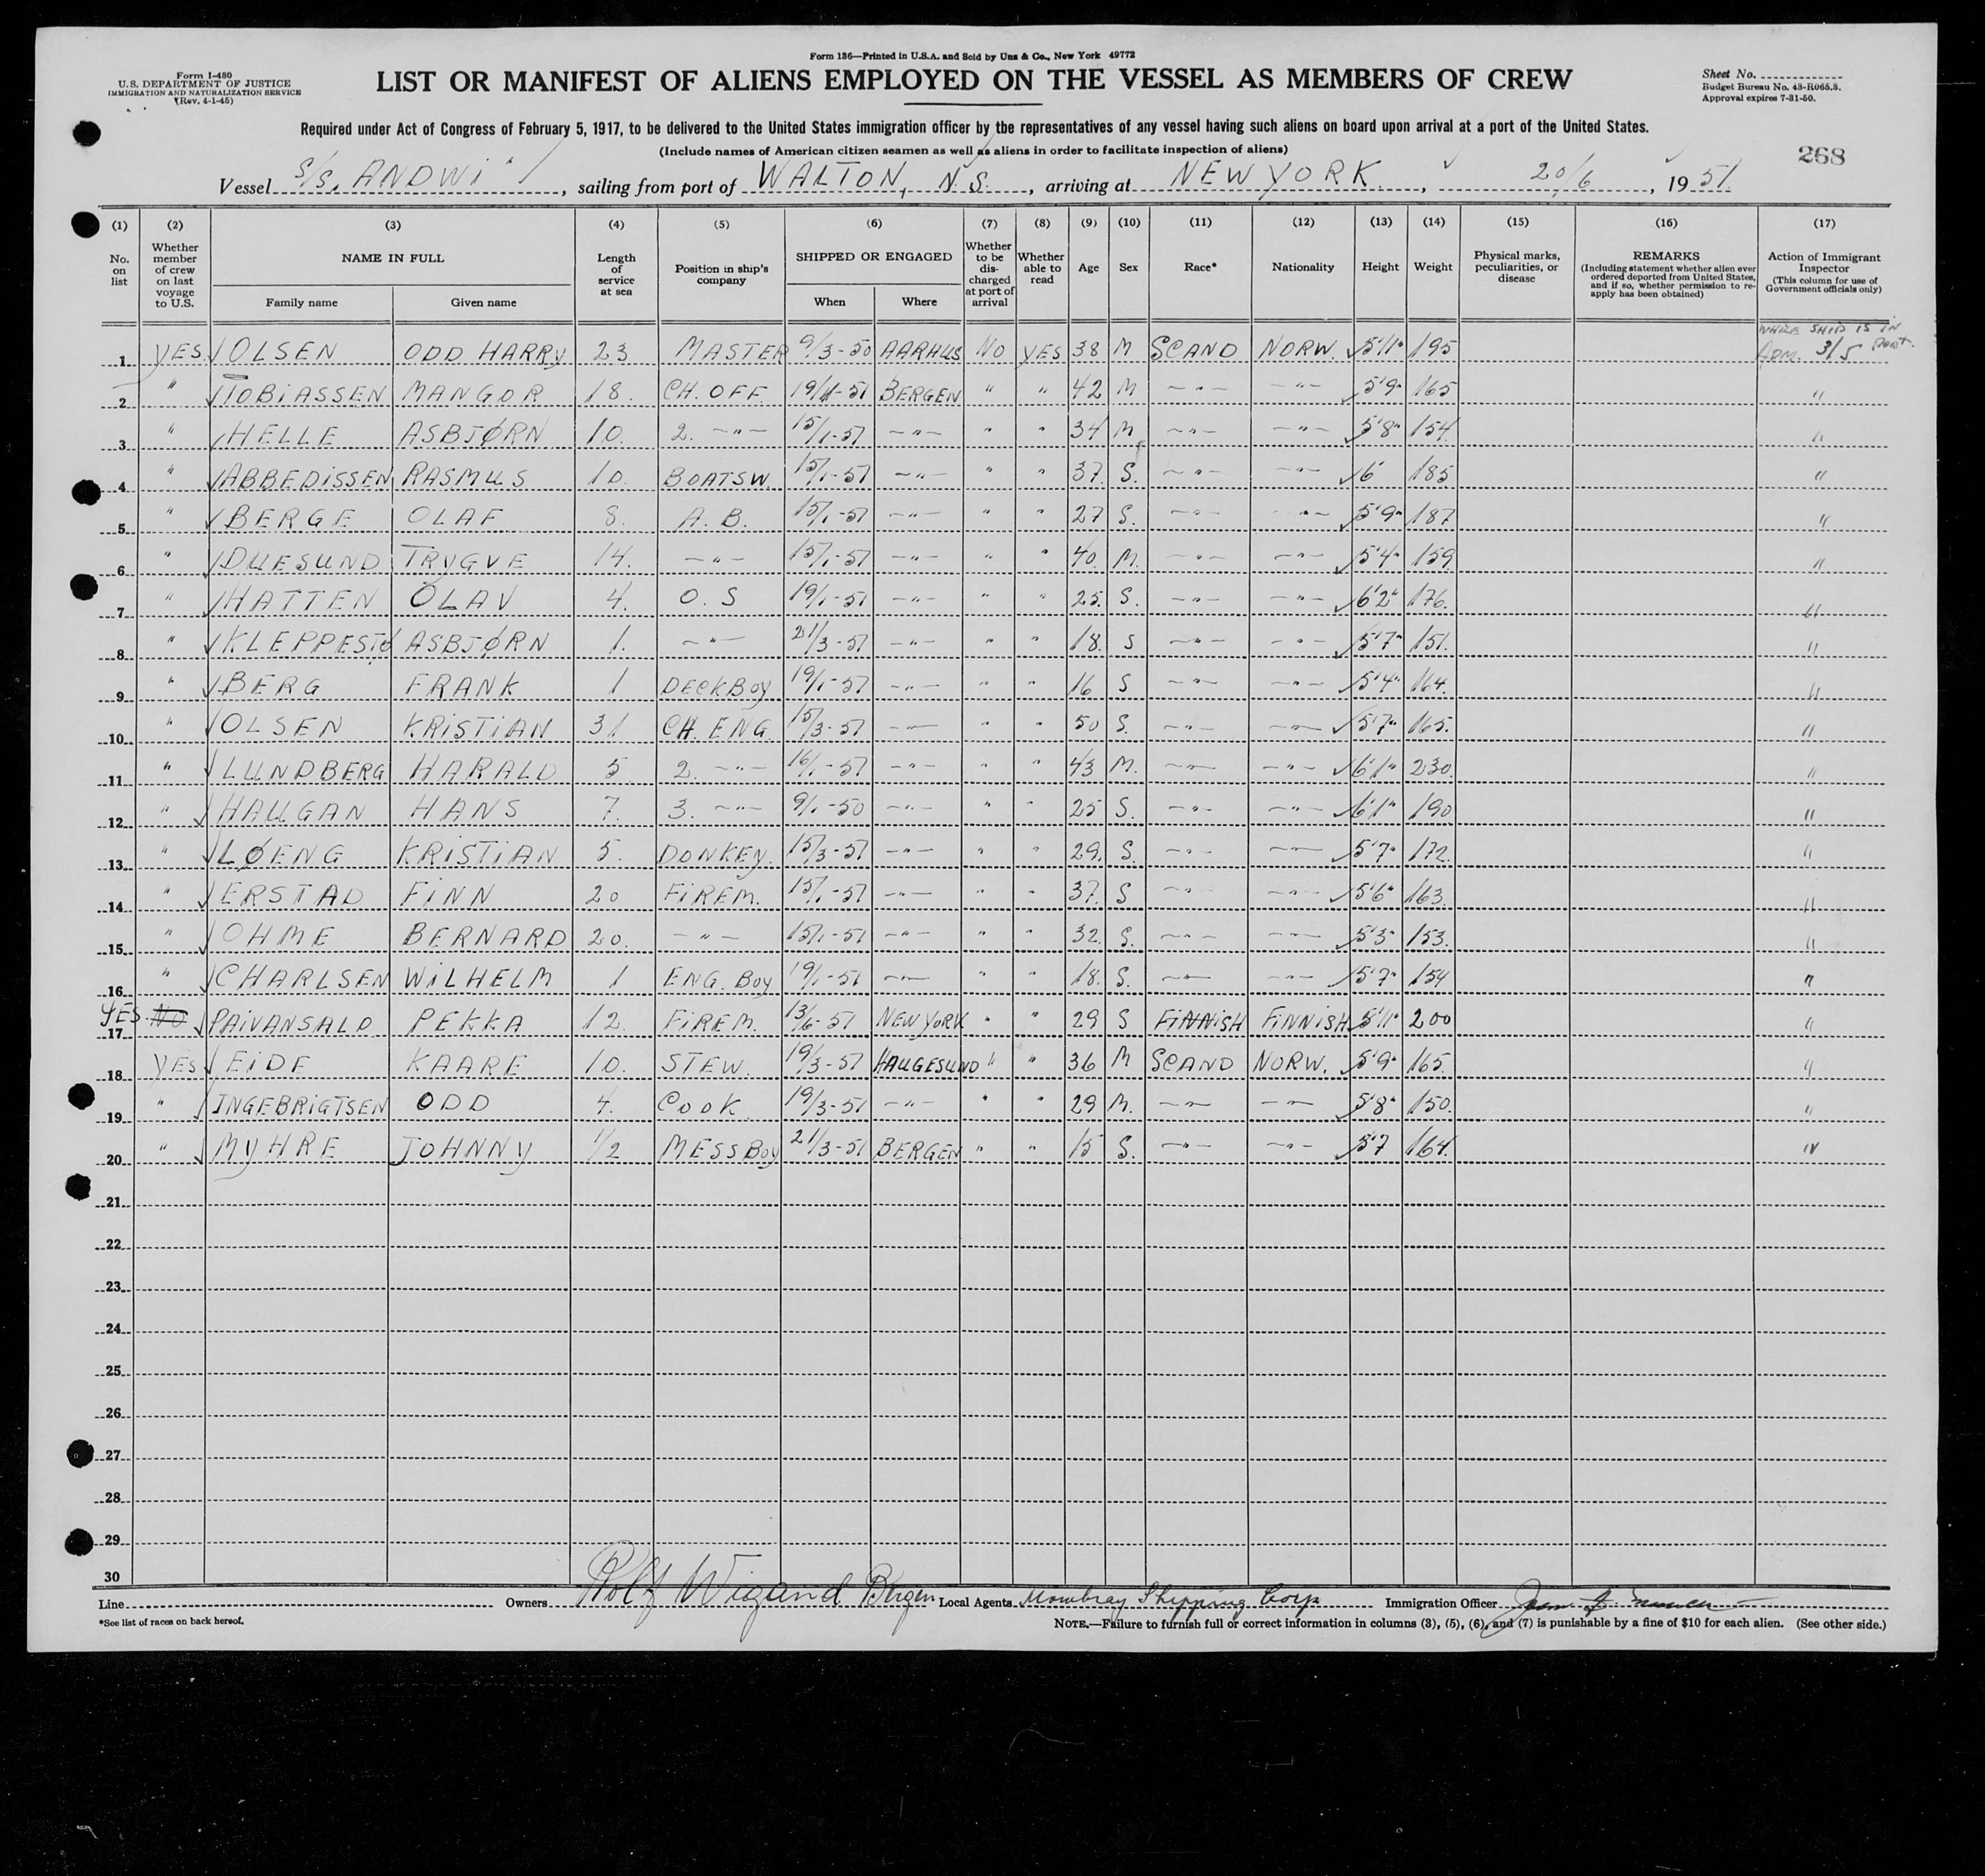 Form 136—Printed in U.S.A. and Sold by Unz & Co., New York 49772
Form I-480
U.S. DEPARTMENT OF JUSTICE
IMMIGRATION AND NATURALIZATION SERVICE
(Rev. 4-1-45)
LIST OR MANIFEST OF ALIENS EMPLOYED ON THE VESSEL AS MEMBERS OF CREW
Sheet No.
Budget Bureau No. 43-R065.3.
Approval expires 7-31-50.
Required under Act of Congress of February 5, 1917, to be delivered to the United States immigration officer by the representatives of any vessel having such aliens on board upon arrival at a port of the United States.
(Include names of American citizen seamen as well as aliens in order to facilitate inspection of aliens)
268
Vessel S/S. ANDWI, sailing from port of WALTON, N.S., arriving at NEW YORK, 20/6, 1951.
(1) (2) (3) (4) (5) (6) (7) (8) (9) (10) (11) (12) (13) (14) (15) (16) (17)
No. on list
Whether member of crew on last voyage to U.S.
NAME IN FULL
Family name Given name
Length of service at sea
Position in ship's company
SHIPPED OR ENGAGED
When Where
Whether to be discharged at port of arrival
Whether able to read
Age Sex Race* Nationality Height Weight
Physical marks, peculiarities, or disease
REMARKS
(Including statement whether alien ever ordered deported from United States, and if so, whether permission to re-apply has been obtained)
Action of Immigrant Inspector
(This column for use of Government officials only)
WHILE SHIP IS IN PORT.
1 YES OLSEN ODD HARRY 23 MASTER 9/3-50 AARHUS NO YES 38 M SCAND NORW. 5'11" 195 ADM. 3/5
2 " TOBIASSEN MANGOR 18. CH. OFF. 19/1-51 BERGEN " " 42 M -"- -"- 5'9" 165 "
3 " HELLE ASBJØRN 10. 2. -"- 15/1-51 -"- " " 34 M -"- -"- 5'8" 154 "
4 " ABBEDISSEN RASMUS 10. BOATSW. 15/1-51 -"- " " 37. S. -"- -"- 6' 185 "
5 " BERGE OLAF 8. A.B. 15/1-51 -"- " " 27 S. -"- -"- 5'9" 187 "
6 " DUESUND TRYGVE 14. -"- 15/1-51 -"- " " 40. M. -"- -"- 5'4" 159 "
7 " HATTEN OLAV 4. O.S 19/1-51 -"- " " 25. S. -"- -"- 6'2" 176. "
8 " KLEPPESTØ ASBJØRN 1. -"- 21/3-51 -"- " " 18. S -"- -"- 5'7" 151. "
9 " BERG FRANK 1 DECKBOY 19/1-51 -"- " " 16 S -"- -"- 5'4" 164. "
10 " OLSEN KRISTIAN 31 CH. ENG. 15/3-51 -"- " " 50 S. -"- -"- 5'7" 165. "
11 " LUNDBERG HARALD 5 2. -"- 16/1-51 -"- " " 43 M. -"- -"- 6'1" 230. "
12 " HAUGAN HANS 7. 3. -"- 9/1-50 -"- " " 25 S. -"- -"- 6'1" 190 "
13 " LØENG KRISTIAN 5. DONKEY. 15/3-51 -"- " " 29. S. -"- -"- 5'7" 172. "
14 " ERSTAD FINN 20 FIREM. 15/1-51 -"- " " 37. S -"- -"- 5'6" 163. "
15 " OHME BERNARD 20. -"- 15/1-51 -"- " " 32. S. -"- -"- 5'3" 153. "
16 " CHARLSEN WILHELM 1 ENG. BOY 19/1-51 -"- " " 18. S. -"- -"- 5'7" 154 "
17 YES. NO PAIVANSALO PEKKA 12. FIREM. 13/6-51 NEW YORK " " 29 S FINNISH FINNISH 5'11" 200 "
18 YES EIDE KAARE 10. STEW. 19/3-51 HAUGESUND " " 36 M SCAND NORW. 5'9" 165. "
19 " INGEBRIGTSEN ODD 4. COOK 19/3-51 -"- " " 29 M. -"- -"- 5'8" 150. "
20 " MYHRE JOHNNY 1/2 MESSBOY 21/3-51 BERGEN " " 15 S. -"- -"- 5'7 164. "
21
22
23
24
25
26
27
28
29
30
Line Owners Rolf Wigand Bergen Local Agents Mowbray Shipping Corp Immigration Officer
*See list of races on back hereof.
NOTE.—Failure to furnish full or correct information in columns (3), (5), (6), and (7) is punishable by a fine of $10 for each alien. (See other side.)